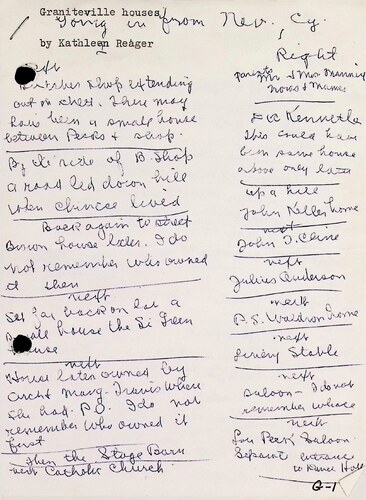 Graniteville houses
going in from Nev. Cy.
by Kathleen Reager
Left
Butcher Shop extending
out on creek. There may
have been a small house
between Pecks & shop.
By the side of B. Shop
a road led down hill
when Chinese lived
Back again to street
house later. I do
not remember who owned
it then
next
Set far back on lot a
house the Si Green
house
next
House later owned by
and Mary Travis when
she had P.O. I do not
remember who owned it
first
then the Stage Barn
next Catholic Church.
Right
Mr & Mrs Manning
Dr Kenneth
this could have
been same house
above only later
up a hill
John Keller home
next
John T. Cline
next
Julius Anderson
next
P. S. Waldron home
next
Livery Stable
next
saloon - I do not
remember whose
next
Lou Peck Saloon
Separate entrance
to Dance Hall
G-1